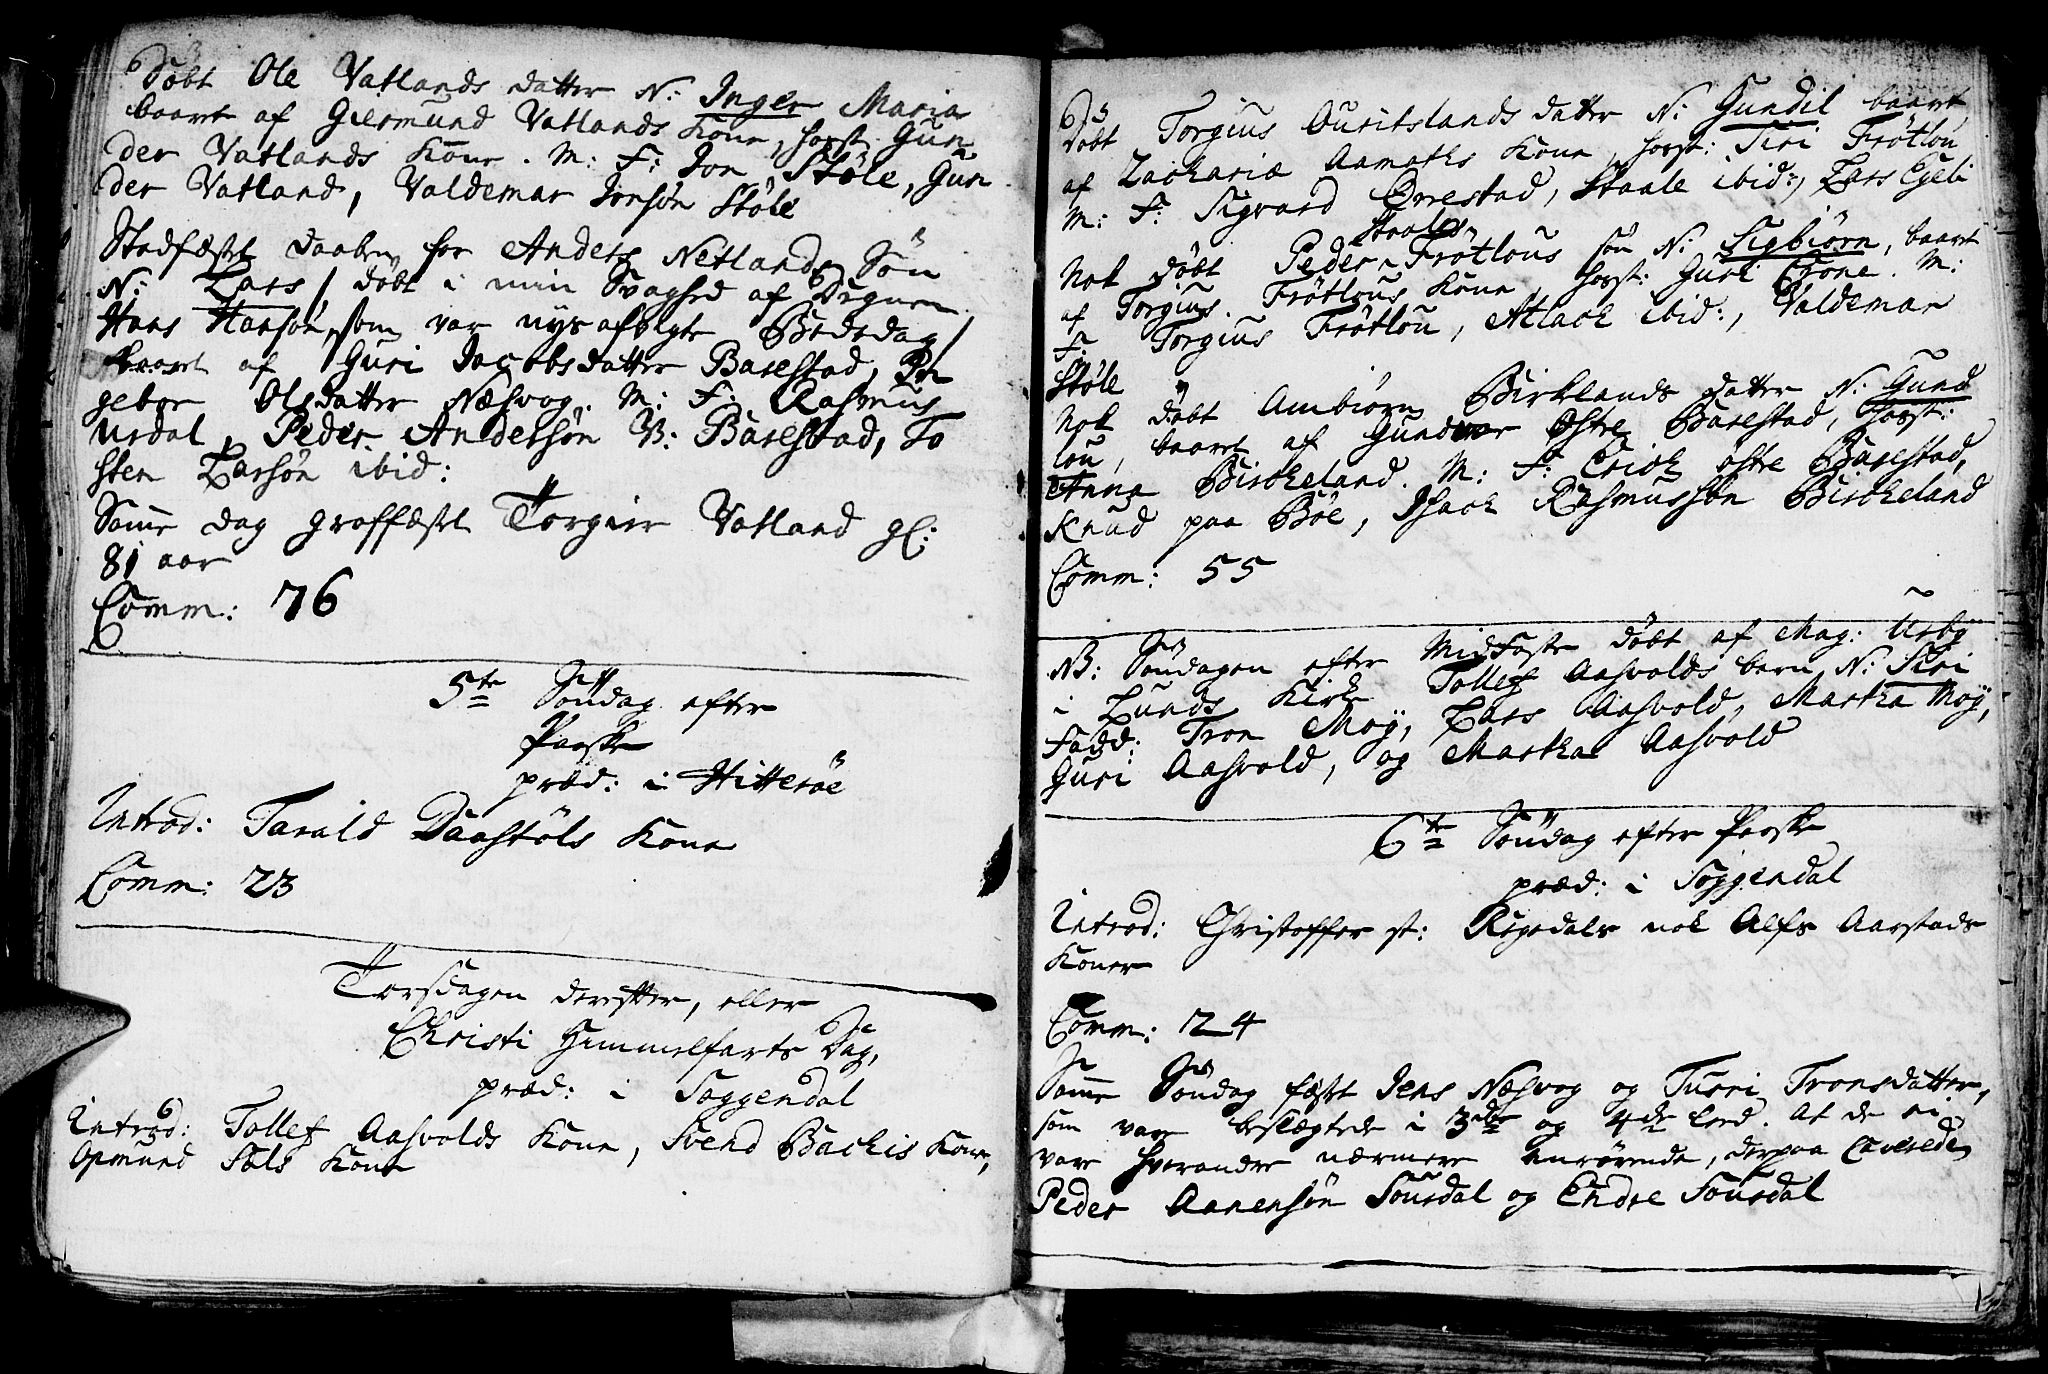 Döbt Ole Vatlands datter N: Inger Maria
baaret af Giermund Vatlands Kone, forst: Gun
der Vatlands Kone. M: F: Jon Stöle, Gun
der Vatland, Valdemar Jonsön Stöle
Stadfæstet daaben for Anders Netlands Sön
N: Lars / döbt i min Svaghed af Degnen
Hans Hansön, som var nyss afvigte Bededag /
baaret af Guri Jacobsdatter Barestad, In
gebor Olsdatter Næsvog. M: F: Rasmus
Urdal, Peder Andersön V: Barestad, To
sten Larsön ibid:
Samme dag graffæstet Torgier Vatland gl:
81 aar
Comm: 76
5te Söndag efter
Paaske
præd: i Hitteröe
Introd: Tarald Daastöls Kone
Comm: 23
Torsdagen derefter, eller
Christi Himmelfarts Dag,
præd: i Soggendal
Introd: Tollef Aasvolds Kone, Svend Bachis Kone,
Opmund Kone
Döbt Torgius Ouritslands datter N: Gundil baaret
af Zacharia Aamoths Kone, forst: Siri Frötlou
M: F: Sigvard Ørrestad, Staale ibid:, Lars Egeli
Staales
Nok döbt Peder Frötlous sön N: Sigbiörn, baaret
af Torgius Frötlous Kone, forst: Guri Crone. M:
F: Torgius Frötlou, Atlack ibid:, Valdemar
Stöle
Nok döbt Ambiörn Birklands datter N: Gund
lou, baaret af Gundvor Østre Barestad, forst:
Anna Birckeland. M: F: Erick östre Barestad,
Knud paa Böe, Isack Rasmussön Birckeland
Comm: 55
NB: Söndagen efter Midfaste döbt af Mag: Usby
i Lunds Kirke Tollef Aasvolds barn N: Siri
Fadd: Tron Moÿ, Lars Aasvold, Martha Moÿ,
Guri Aasvold, og Martha Aasvold
6te Söndag efter Paaske
præd: i Soggendal
Introd: Christoffer st: Regedals nok Alfs Aarstads
Koner
Comm: 24
Samme Söndag fæst Jens Næsvog og Turri Tronsdatter,
som vare beslægtede i 3die og 4de Leed. At de ei
vare hverandre nærmere anrörende, derpaa Caverede
Peder Aanensön Sousdal og Endre Sousdal